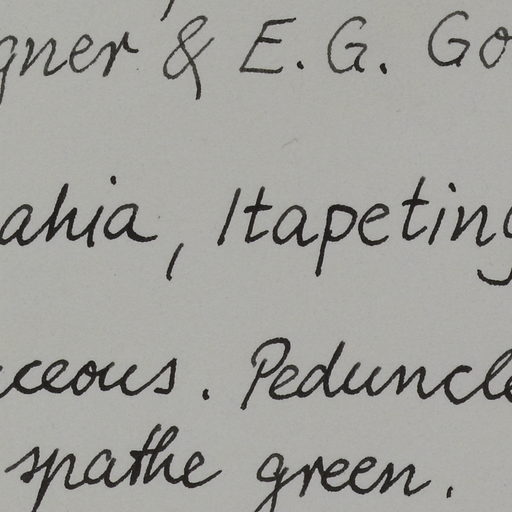 gner & E. G. Go
ahia, Itapeting
ceous. Peduncle
spathe green.